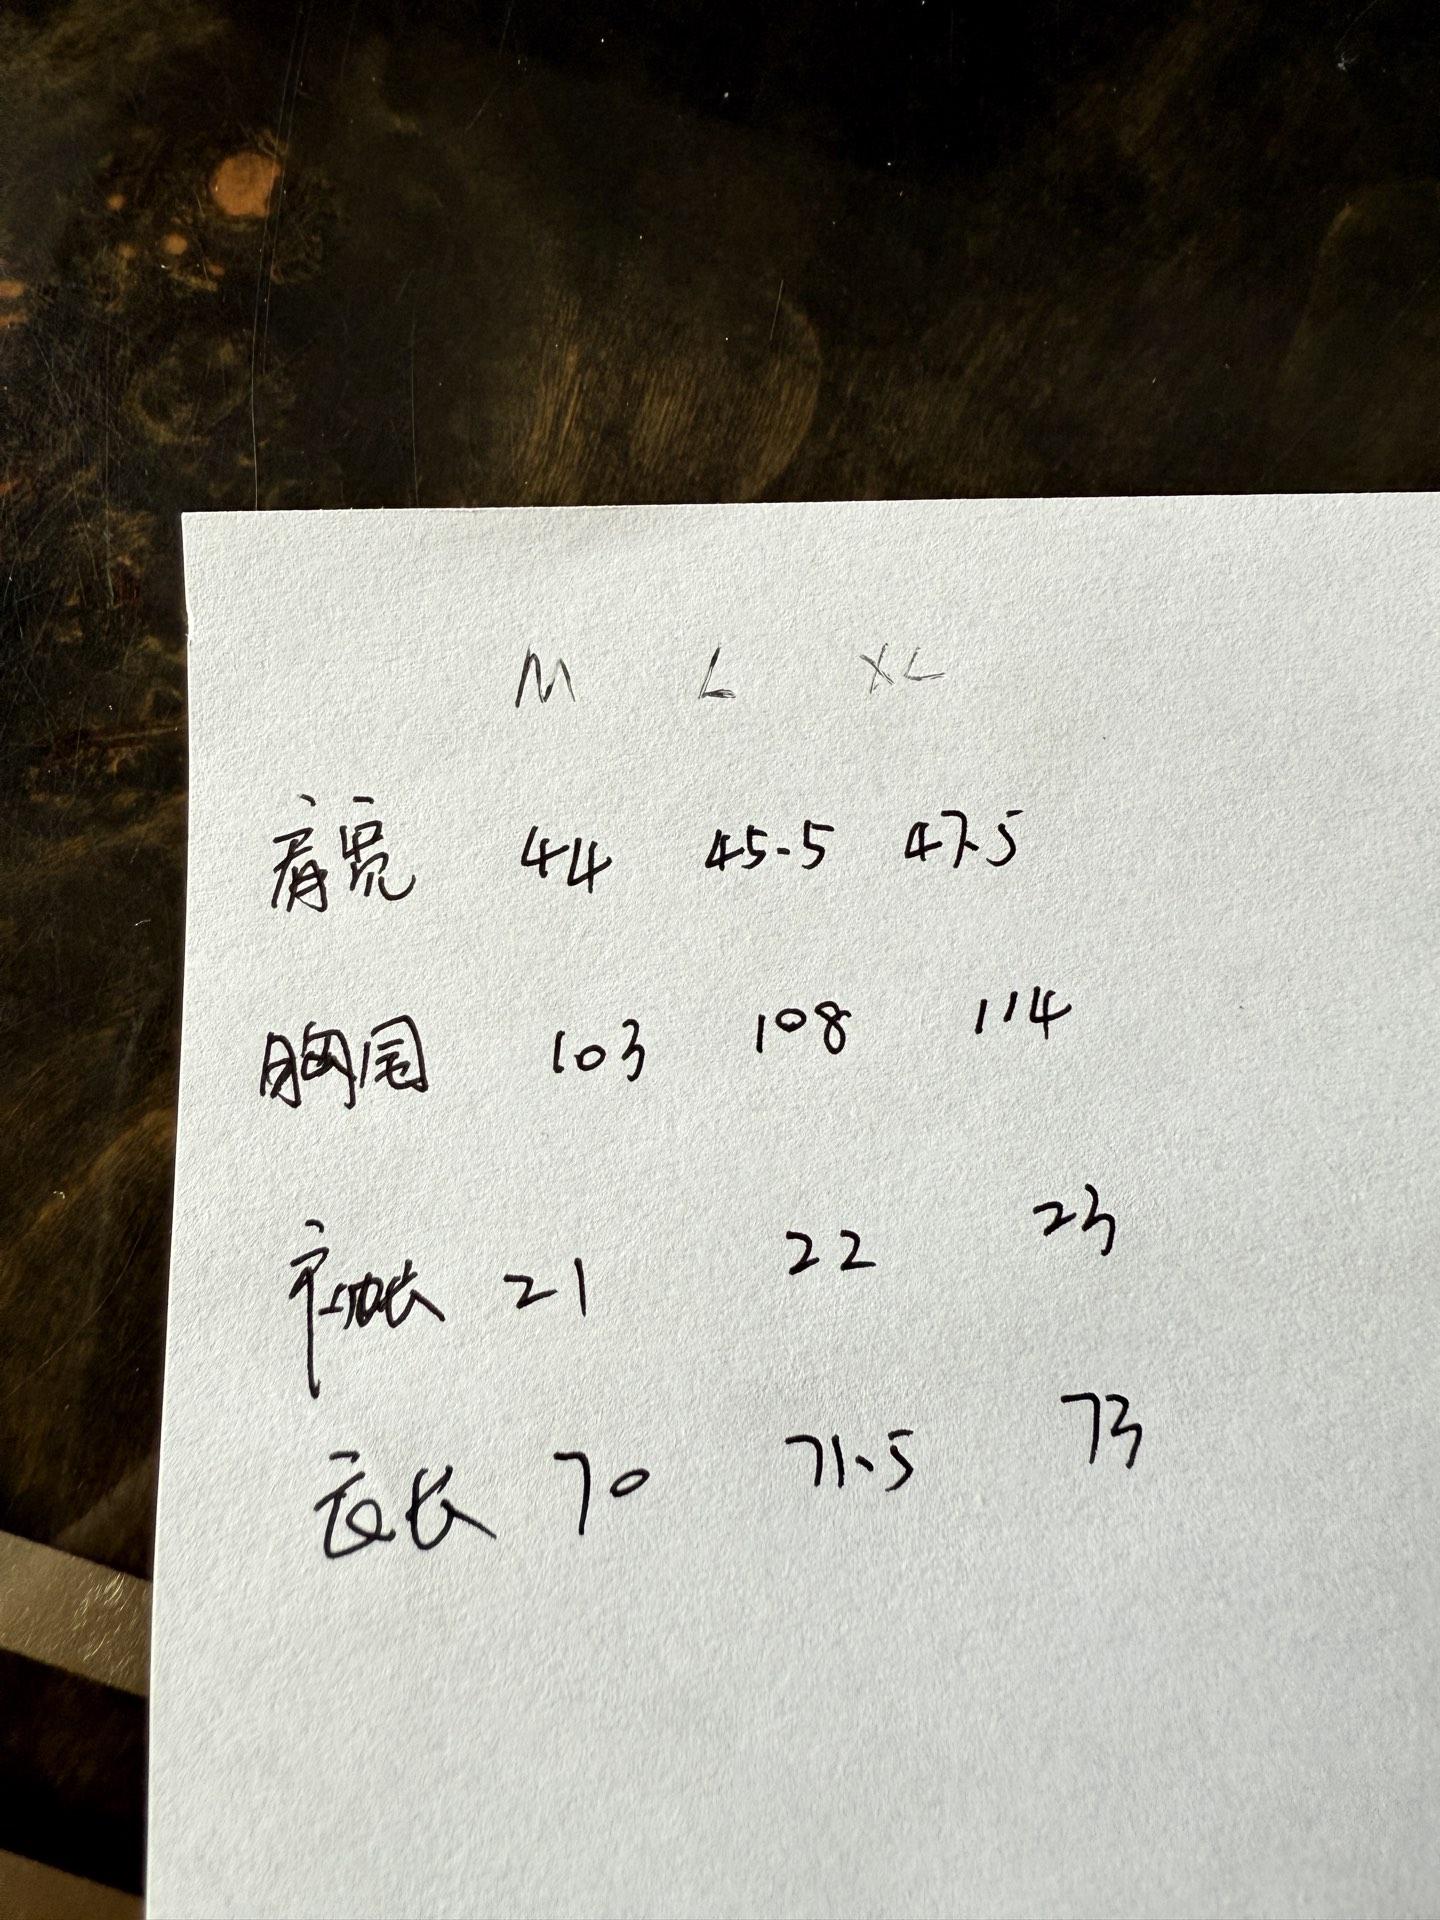 M L XL
肩宽 44 45.5 47.5
胸围 103 108 114
袖长 21 22 23
衣长 70 71.5 73